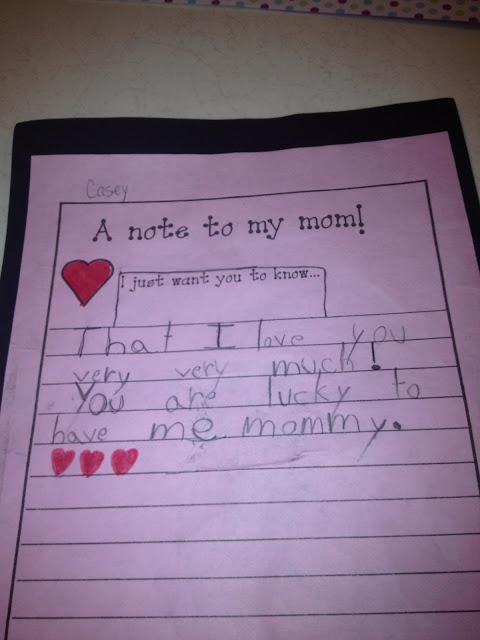 Casey
A note to my mom!
I just want you to know...
That I love you
very very much!
You are lucky to
have me mommy.